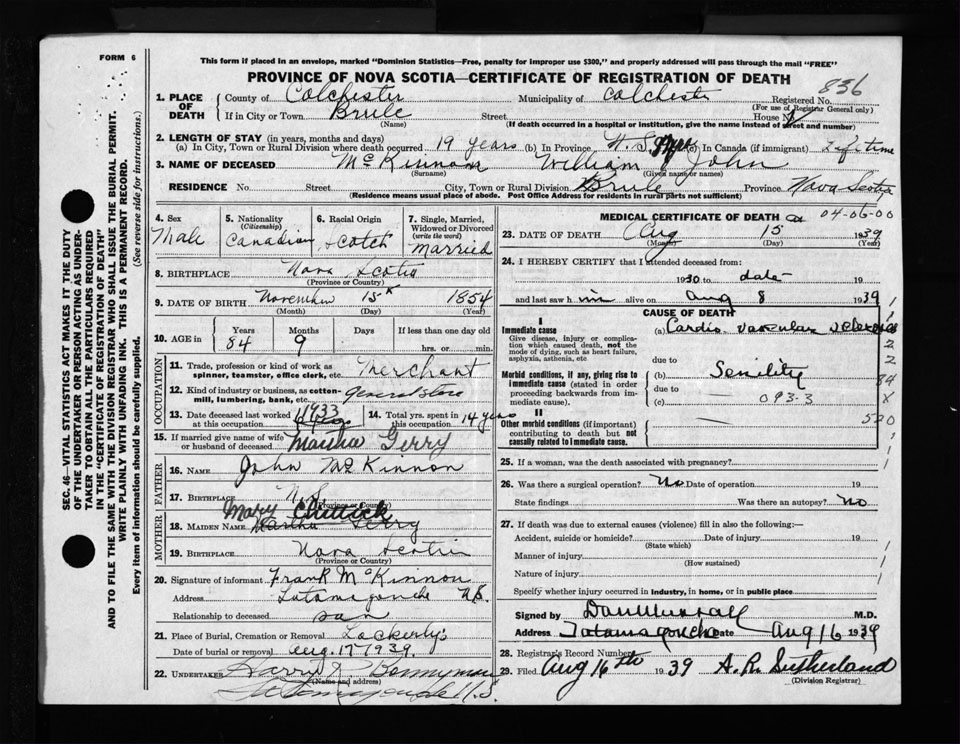 FORM 6
This form if placed in an envelope, marked "Dominion Statistics—Free, penalty for improper use $300," and properly addressed will pass through the mail "FREE"
PROVINCE OF NOVA SCOTIA—CERTIFICATE OF REGISTRATION OF DEATH
836
1. PLACE OF DEATH County of Colchester Municipality of Colchester Registered No.
(For use of Registrar General only)
If in City or Town Brule Street House No
(Name) (If death occurred in a hospital or institution, give the name instead of street and number)
2. LENGTH OF STAY (in years, months and days)
(a) In City, Town or Rural Division where death occurred 19 years (b) In Province N.S. (c) In Canada (if immigrant) Lifetime
3. NAME OF DECEASED McKinnon William John
(Surname) (Given name or names)
RESIDENCE No. Street City, Town or Rural Division Brule Province Nova Scotia
(Residence means usual place of abode. Post Office Address for residents in rural parts not sufficient)
SEC. 46—VITAL STATISTICS ACT MAKES IT THE DUTY
OF THE UNDERTAKER OR PERSON ACTING AS UNDER-
TAKER TO OBTAIN ALL THE PARTICULARS REQUIRED
IN THE "CERTIFICATE OF REGISTRATION OF DEATH"
AND TO FILE THE SAME WITH THE DIVISION REGISTRAR WHO SHALL ISSUE THE BURIAL PERMIT.
WRITE PLAINLY WITH UNFADING INK. THIS IS A PERMANENT RECORD.
Every item of information should be carefully supplied. (See reverse side for instructions.)
4. Sex Male
5. Nationality (Citizenship) Canadian
6. Racial Origin Scotch
7. Single, Married, Widowed or Divorced (write the word) Married
8. BIRTHPLACE Nova Scotia
(Province or Country)
9. DATE OF BIRTH November 15th 1854
(Month) (Day) (Year)
10. AGE in Years 84 Months 9 Days If less than one day old
hrs. or min.
OCCUPATION
11. Trade, profession or kind of work as spinner, teamster, office clerk, etc. Merchant
12. Kind of industry or business, as cotton-mill, lumbering, bank, etc. General store
13. Date deceased last worked at this occupation 1933
14. Total yrs. spent in this occupation 14 years
15. If married give name of wife or husband of deceased Martha Gerry
FATHER
16. NAME John McKinnon
17. BIRTHPLACE N.S.
(Province or Country)
MOTHER
Mary
18. MAIDEN NAME Martha Gerry
19. BIRTHPLACE Nova Scotia
(Province or Country)
20. Signature of informant Frank McKinnon
Address Tatamagouche N.S.
Relationship to deceased son
21. Place of Burial, Cremation or Removal Lockerby's
Date of burial or removal Aug. 17 1939.
22. UNDERTAKER Harry
(Name and address)
MEDICAL CERTIFICATE OF DEATH 04-06-00
23. DATE OF DEATH Aug 15 1939
(Month) (Day) (Year)
24. I HEREBY CERTIFY that I attended deceased from:
1930 to date 19
and last saw him alive on Aug 8 1939
CAUSE OF DEATH
I
Immediate cause (a) Cardio vascular
Give disease, injury or complication which caused death, not the mode of dying, such as heart failure, asphyxia, asthenia, etc
due to
Morbid conditions, if any, giving rise to immediate cause (stated in order proceeding backwards from immediate cause). (b) Senility
due to
(c) 093-3
II
Other morbid conditions (if important) contributing to death but not causally related to immediate cause.
1
1
2
2
84
8
520
25. If a woman, was the death associated with pregnancy?
26. Was there a surgical operation? No Date of operation 19
State findings Was there an autopsy? No
27. If death was due to external causes (violence) fill in also the following:—
Accident, suicide or homicide? Date of injury 19
(State which)
Manner of injury
(How sustained)
Nature of injury
Specify whether injury occurred in industry, in home, or in public place
Signed by Dan Murray M.D.
Address Tatamagouche Date Aug 16 1939
28. Registrar's Record Number
29. Filed Aug 16th 1939 A. R. Sutherland
(Division Registrar)